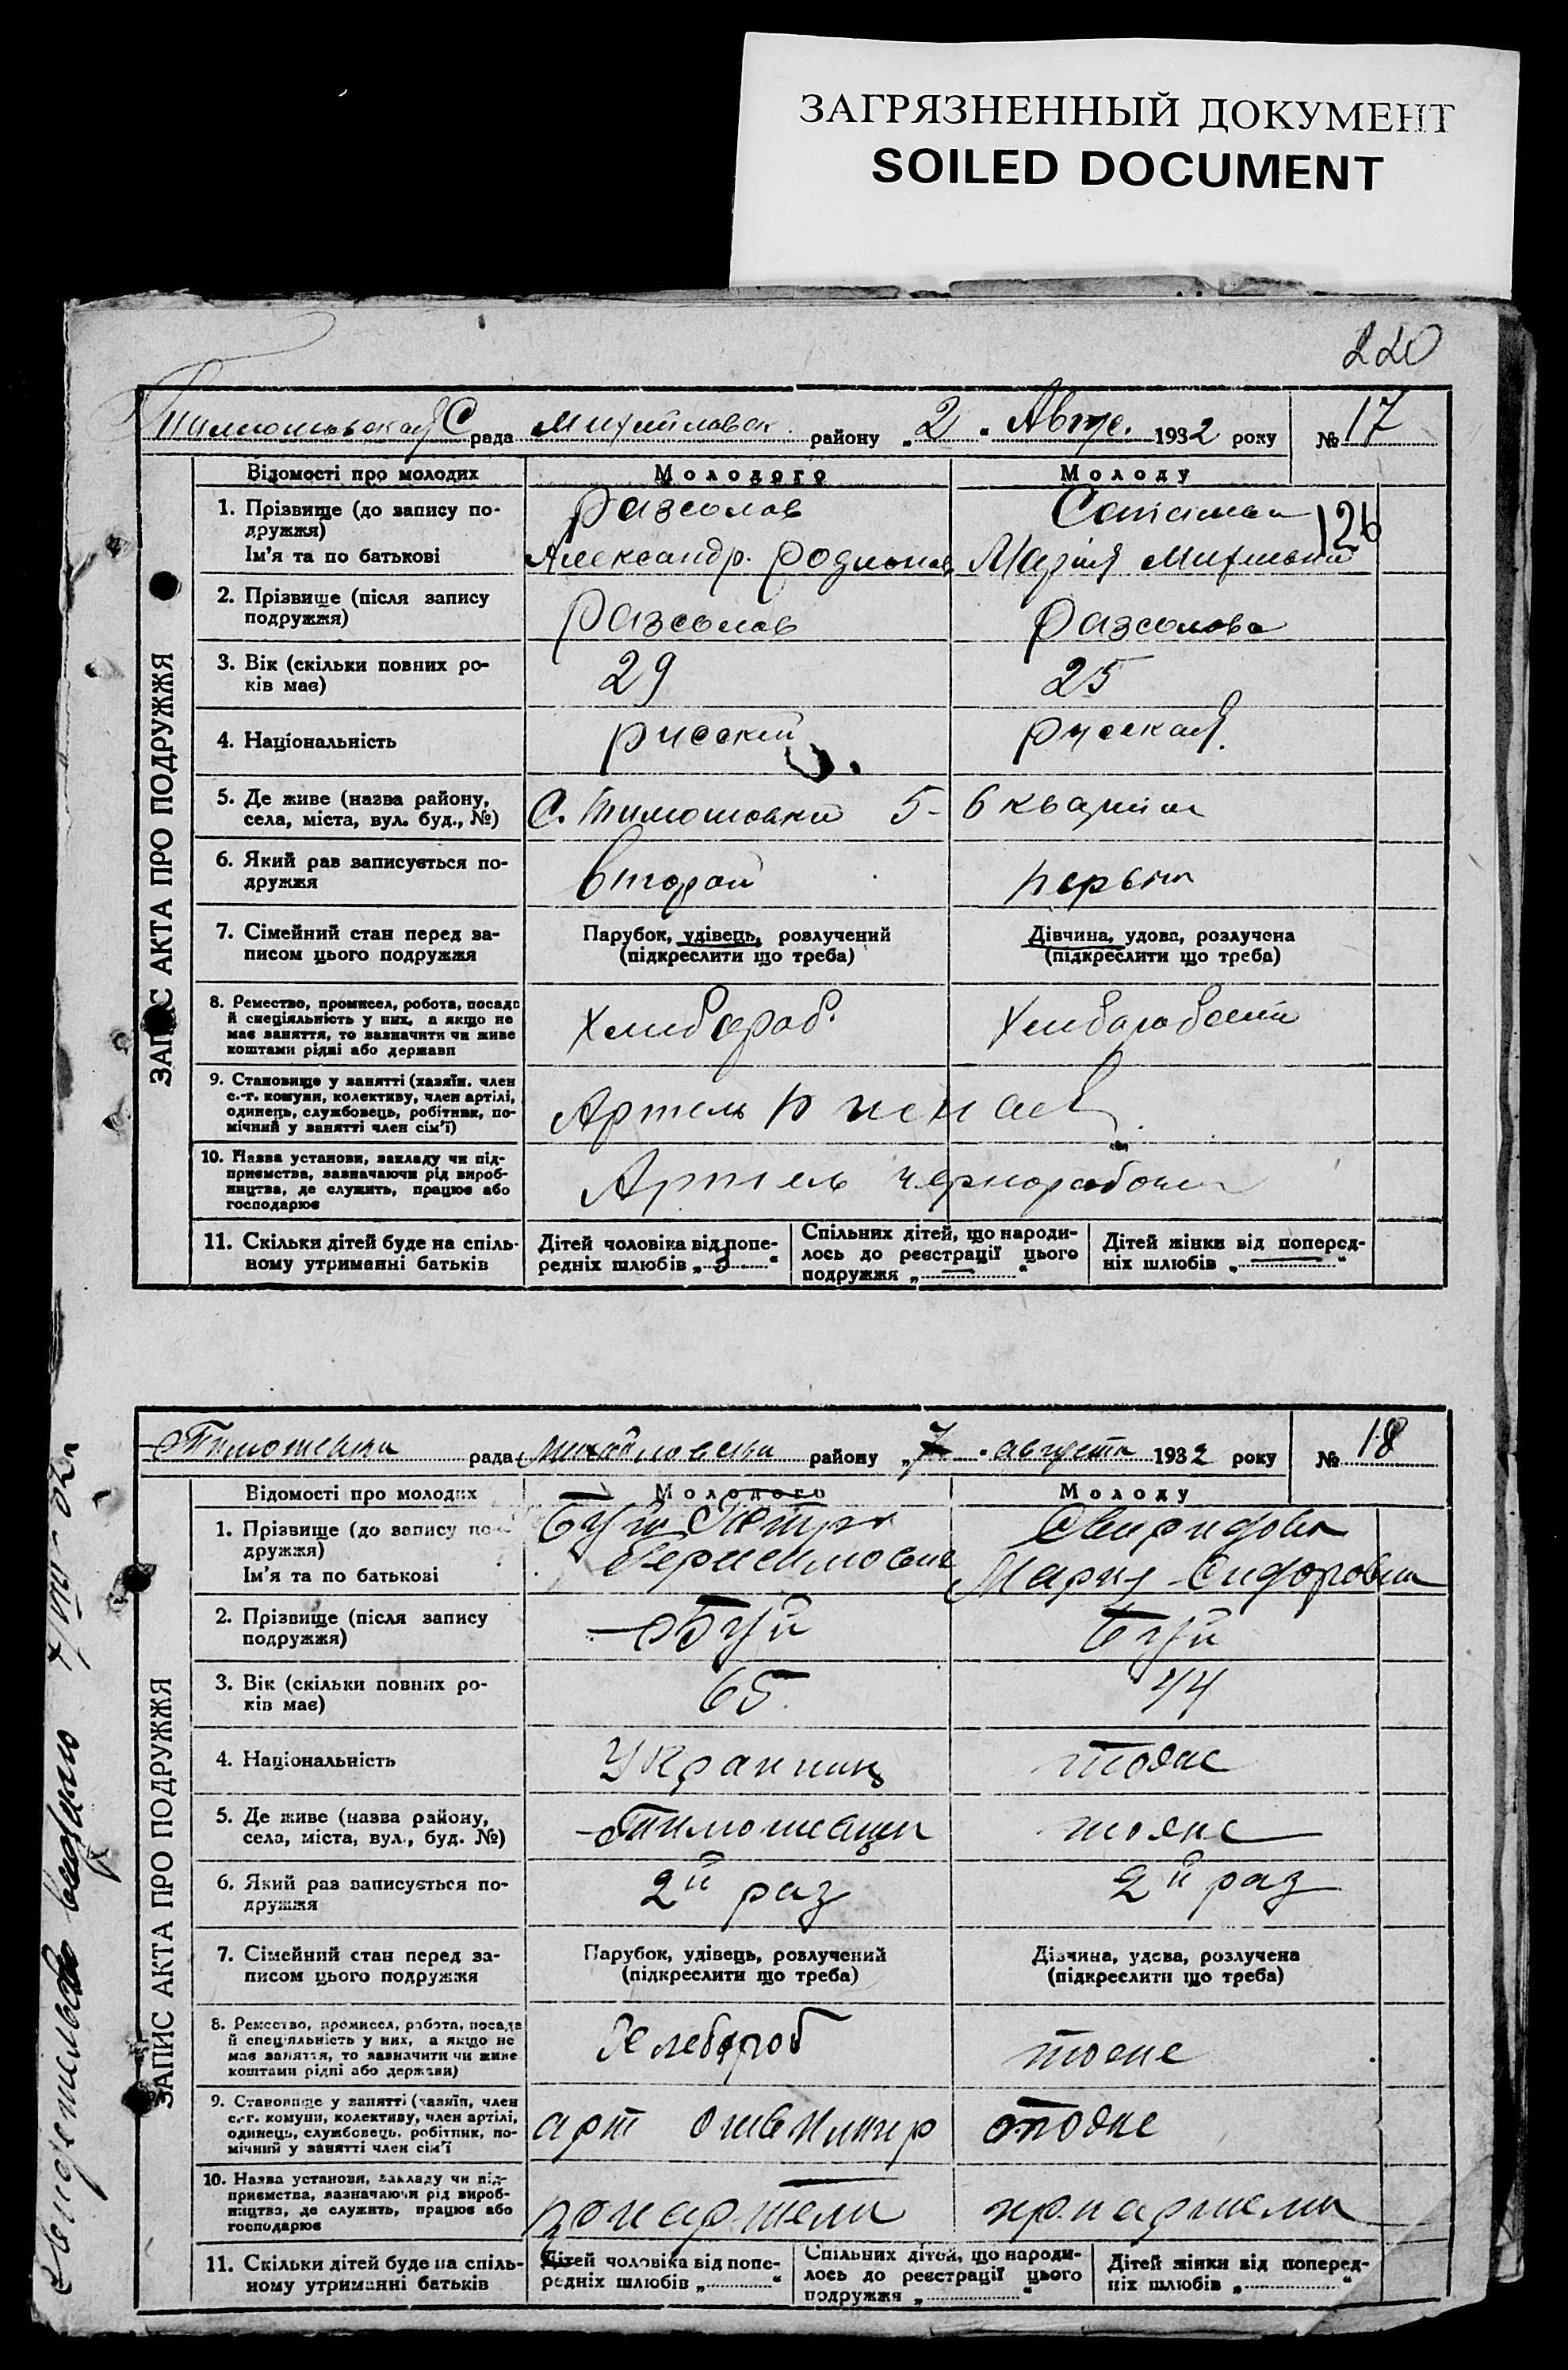 ЗАГРЯЗНЕННЫЙ ДОКУМЕНТ
SOILED DOCUMENT
220
Тимошовская С рада Михайловск району „2“ Авгус. 1932 року № 17
ЗАПИС АКТА ПРО ПОДРУЖЖЯ
Відомості про молодих Молодого Молоду
1. Прізвище (до запису подружжя) Разсолов 126
Ім'я та по батькові Александр. Родионов Мария
2. Прізвище (після запису подружжя) Разсолов Разсолова
3. Вік (скільки повних років має) 29 25
4. Національність русский русская
5. Де живе (назва району, села, міста, вул. буд., №) С. Тимошовка 5-6 квартал
6. Який раз записується подружжя второй первый
7. Сімейний стан перед записом цього подружжя Парубок, удівець, розлучений (підкреслити що треба) Дівчина, удова, розлучена (підкреслити що треба)
8. Ремество, промисел, робота, посада й спеціяльність у них, а якщо не має заняття, то зазначити чи живе коштами рідні або держави Хлибороб.
9. Становище у занятті (хазяїн. член с.-г. комуни, колективу, член артілі, одинець, службовець, робітник, помічний у занятті член сім'ї) Артель
10. Назва установи, закладу чи підприємства, зазначаючи рід виробництва, де служить, працює або господарює Артель
11. Скільки дітей буде на спільному утриманні батьків Дітей чоловіка від попередніх шлюбів „3“ Спільних дітей, що народилось до реєстрації цього подружжя „—“ Дітей жінки від попередніх шлюбів „—“
Тимошевки рада Михайловски району „7“ августа 1932 року № 18
ЗАПИС АКТА ПРО ПОДРУЖЖЯ
Відомості про молодих Молодого Молоду
1. Прізвище (до запису подружжя) Буй Петро Свиридова
Ім'я та по батькові Мария Сидоровна
2. Прізвище (після запису подружжя) Буй Буй
3. Вік (скільки повних років має) 65 44
4. Національність Украинец тоже
5. Де живе (назва району, села, міста, вул., буд. №) тоже
6. Який раз записується подружжя 2й раз 2й раз
7. Сімейний стан перед записом цього подружжя Парубок, удівець, розлучений (підкреслити що треба) Дівчина, удова, розлучена (підкреслити що треба)
8. Ремество, промисел, робота, посада й спеціяльність у них, а якщо не має заняття, то зазначити чи живе коштами рідні або держави) Хлебороб тоже
9. Становище у занятті (хазяїн, член с.-г. комуни, колективу, член артілі, одинець, службовець, робітник, помічний у занятті член сім'ї арт тоже
10. Назва установи, закладу чи підприємства, зазначаючи рід виробництва, де служить, працює або господарює
11. Скільки дітей буде на спільному утриманні батьків Дітей чоловіка від попередніх шлюбів „ “ Спільних дітей, що народилось до реєстрації цього подружжя „ “ Дітей жінки від попередніх шлюбів „ “